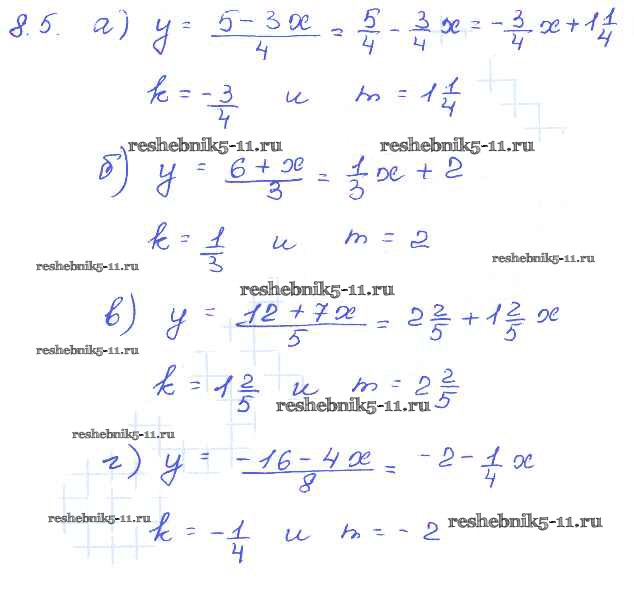 8.5. а) y = (5 - 3x)/4 = 5/4 - 3/4 x = -3/4 x + 1 1/4
k = -3/4 и m = 1 1/4
reshebnik5-11.ru reshebnik5-11.ru
б) y = (6 + x)/3 = 1/3 x + 2
k = 1/3 и m = 2
reshebnik5-11.ru reshebnik5-11.ru
reshebnik5-11.ru
в) y = (12 + 7x)/5 = 2 2/5 + 1 2/5 x
reshebnik5-11.ru
k = 1 2/5 и m = 2 2/5
reshebnik5-11.ru
reshebnik5-11.ru
г) y = (-16 - 4x)/8 = -2 - 1/4 x
reshebnik5-11.ru reshebnik5-11.ru
k = -1/4 и m = -2